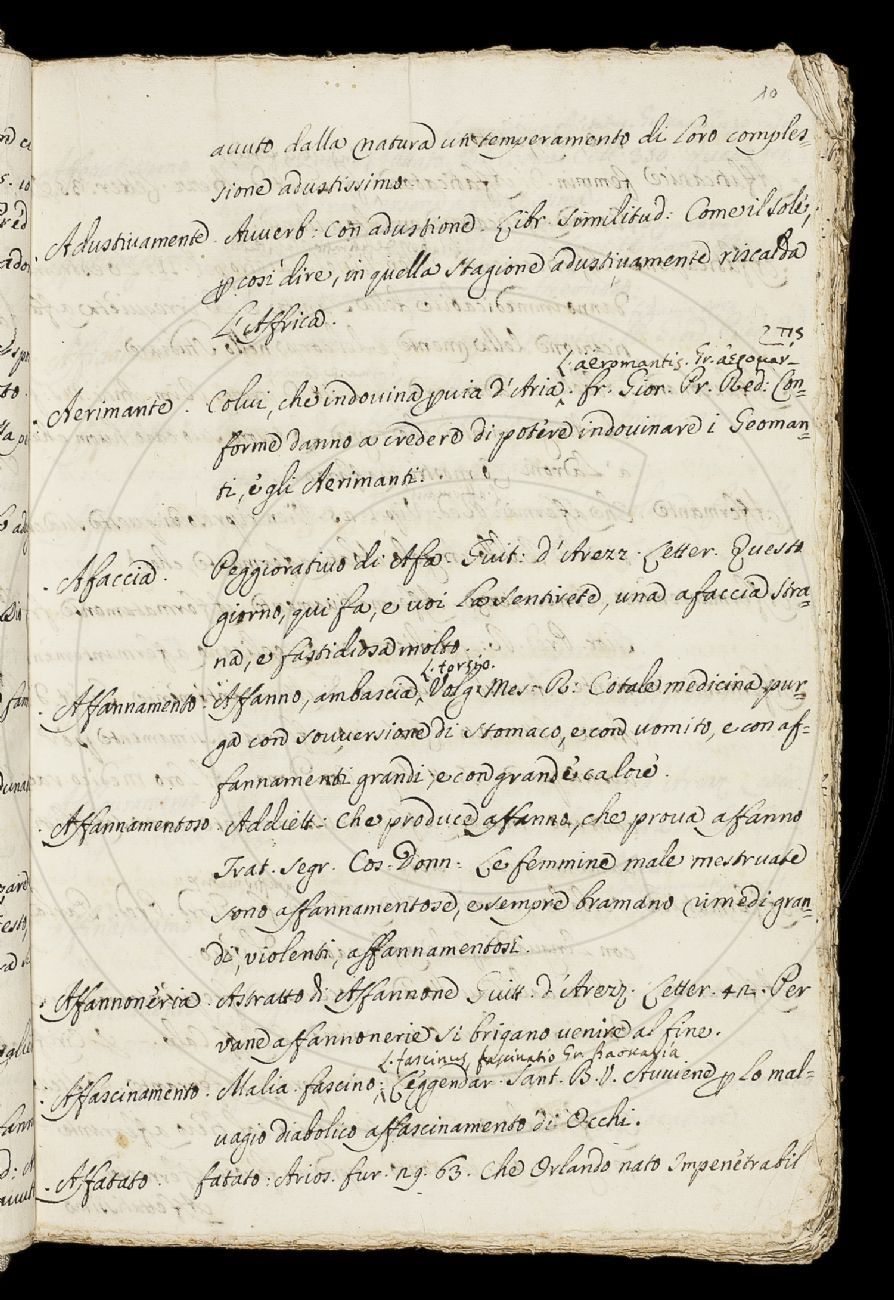 10
auuto dalla natura un temperamento di loro comples=
sione adustissimo.
Adustivamente. Auuerb: con adustione. Libr. Similitud: Come il sole,
ꝑ cosi dire, in quella stagione adustivamente riscalda
L'Affrica.
L. aeromantis. Gr. ἀερομάν-
της
Aerimante. Colui, che indovina ꝑ via d'Aria. fr. Gior. Pr. Red: Con=
forme danno a credere di potere indovinare i Geoman=
ti, e gli Aerimanti.
Afaccia. Peggiorativo di Afa. Guit: d'Arezz. Letter. Questo
giorno, qui fa, e voi La sentirete, una afaccia stra=
na, e fastidiosa molto.
L. torsio.
Affannamento. Affanno, ambascia, Volg. Mes. R: Cotale medicina pur=
ga con souuersione di stomaco, e con vomito, e con af=
fannamenti grandi, e con grande calore.
Affannamentoso. Addiett: Che produce affanno, che prova affanno
Trat. segr. Cos. Donn: Le femmine male mestruate
sono affannamentose, e sempre bramano rimedi gran=
di, violenti, affannamentosi.
Affannoneria. Astratto di Affannone Guitt: d'Arezz. Letter. 42. Per
vane affannonerie si brigano venire al fine.
L. fascinus, fascinatio Gr. βασκανία
Affascinamento. Malia. fascino. Leggendar. Sant. B. V. Avviene ꝑ lo mal=
vagio diabolico affascinamento di Occhi.
Affatato. fatato. Arios. fur. 29. 63. Che Orlando nato impenetrabil